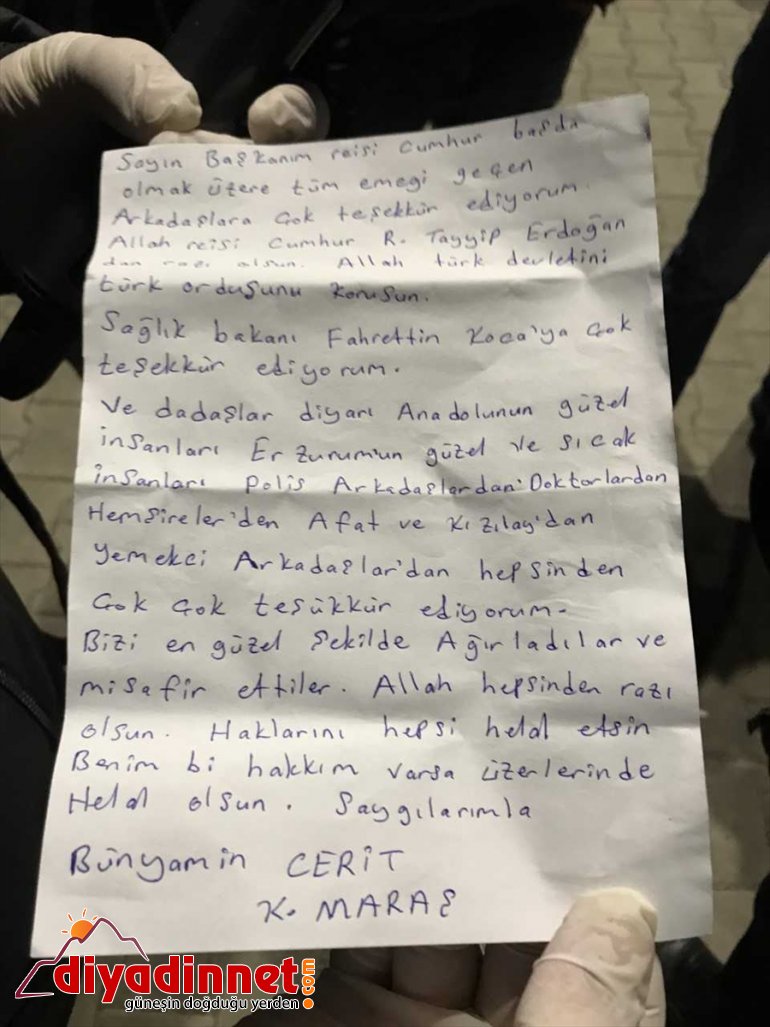 Sayın Başkanım reisi Cumhur başda
olmak üzere tüm emegi geçen
Arkadaşlara Çok teşekkür ediyorum.
Allah reisi Cumhur R. Tayyip Erdoğan
dan razı olsun. Allah türk devletini
türk ordusunu korusun.
Sağlık bakanı Fahrettin Koca'ya Çok
teşekkür ediyorum.
Ve dadaşlar diyarı Anadolunun güzel
insanları Erzurum'un güzel ve sıcak
insanları Polis Arkadaşlardan Doktorlardan
Hemşireler'den Afat ve Kızılay'dan
yemekci Arkadaşlar'dan hepsinden
Çok Çok teşükkür ediyorum.
Bizi en güzel şekilde Ağırladılar ve
misafir ettiler. Allah hepsinden razı
olsun. Haklarını hepsi helal etsin
Benim bi hakkım varsa üzerlerinde
Helal olsun. Saygılarımla
Bünyamin CERİT
K. MARAŞ
diyadinnet.com
güneşin doğduğu yerden